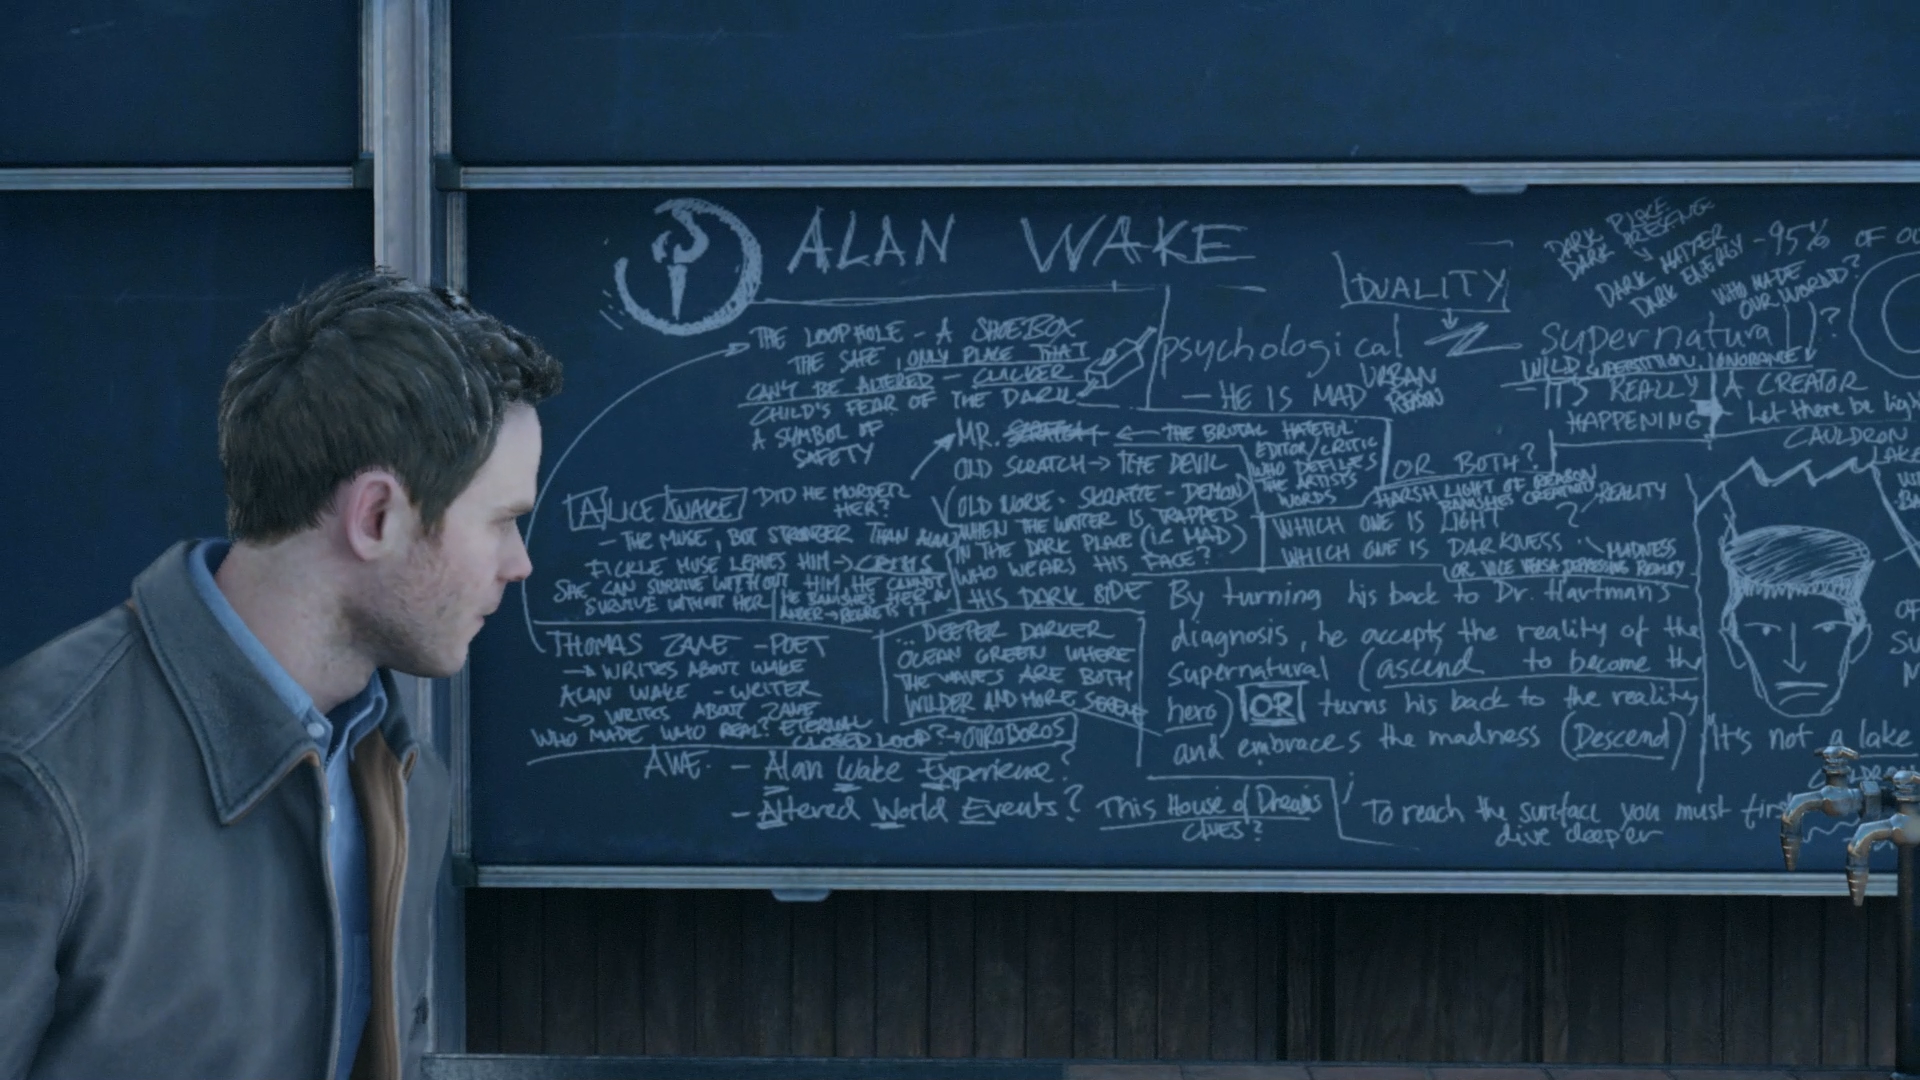 ALAN WAKE
THE LOOPHOLE - A SHOEBOX
THE SAFE, ONLY PLACE THAT
CAN'T BE ALTERED - CLICKER
CHILD'S FEAR OF THE DARK
A SYMBOL OF
SAFETY
ALICE WAKE DID HE MURDER
HER?
- THE MUSE, BUT STRONGER THAN ALAN
FICKLE MUSE LEAVES HIM → CRISIS
SHE CAN SURVIVE WITHOUT HIM, HE CANNOT
SURVIVE WITHOUT HER
HE BANISHES HER IN
ANGER → REGRETS IT
THOMAS ZANE - POET
→ WRITES ABOUT WAKE
ALAN WAKE - WRITER
→ WRITES ABOUT ZANE
WHO MADE WHO REAL? ETERNAL
CLOSED LOOP? → OUROBOROS
AWE. - Alan Wake Experience?
- Altered World Events?
This House of Dreams
clues?
MR. SCRATCH ← THE BRUTAL HATEFUL
EDITOR/CRITIC
WHO DEFILES
THE ARTIST'S
WORDS
OLD SCRATCH → THE DEVIL
OLD NORSE - SKRATTE - DEMON
WHEN THE WRITER IS TRAPPED
IN THE DARK PLACE (I.E MAD)
WHO WEARS HIS FACE?
HIS DARK SIDE
DEEPER DARKER
OCEAN GREEN WHERE
THE WAVES ARE BOTH
WILDER AND MORE SERENE
DUALITY
psychological
- HE IS MAD
URBAN
REASON
supernatural)?
WILD SUPERSTITION, IGNORANCE
IT'S REALLY
HAPPENING
A CREATOR
Let there be ligh
OR BOTH?
HARSH LIGHT OF REASON
BANISHES CREATIVITY
REALITY
WHICH ONE IS LIGHT
WHICH ONE IS DARKNESS
?
MADNESS
OR VICE VERSA, DEPRESSING REALITY
By turning his back to Dr. Hartman's
diagnosis, he accepts the reality of the
supernatural (ascend to become the
hero) OR turns his back to the reality
and embraces the madness (Descend)
To reach the surface you must first
dive deeper
DARK PLACE
DARK PRESENCE
DARK MATTER
DARK ENERGY
-95% OF OU
WHO MADE
OUR WORLD?
CAULDRON
LAKE
It's not a lake